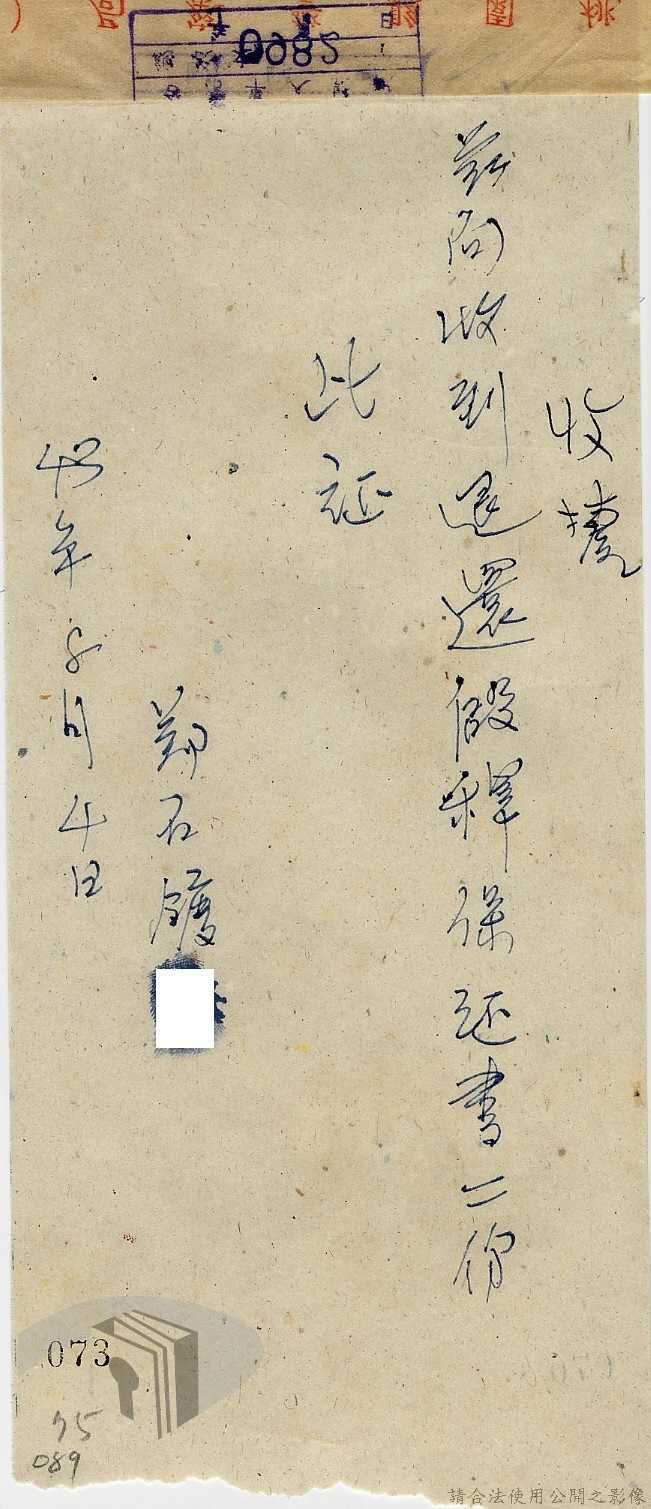 收據
茲向收到退還假釋保证書二份
此证
鄭石
年月4日
073
75
089
0982
請合法使用公開之影像